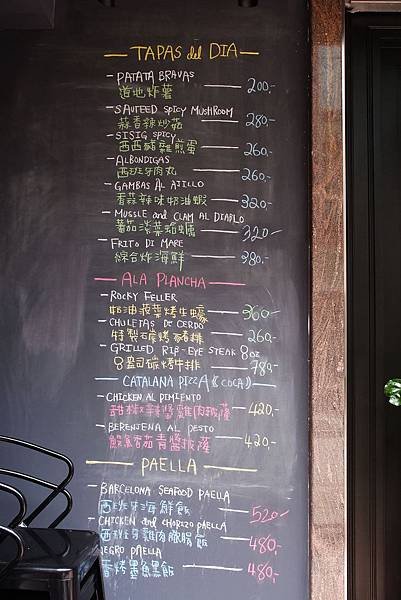 TAPAS del DIA
PATATA BRAVAS
道地炸薯 200.-
SAUTEED SPICY MUSHROOM
蒜香辣炒菇 280.-
SISIG SPICY
西西豬雞煎蛋 260.-
ALBONDIGAS
西班牙肉丸 260.-
GAMBAS AL AJILLO
香蒜辣味奶油蝦 320.-
MUSSLE and CLAM AL DIABLO
蕃茄淡菜蛤蠣 320.-
FRITO DI MARE
綜合炸海鮮 380.-
ALA PLANCHA
ROCKY FELLER
奶油菠菜烤生蠔 360.-
CHULETAS DE CERDO
特製碳烤豬排 260.-
GRILLED RIB-EYE STEAK 8oz
8盎司碳烤牛排 780.-
CATALANA PIZZA (COCA)
CHICKEN al PIMIENTO
甜椒辣醬雞肉披薩 420.-
BERENJENA AL PESTO
蕃茄青醬披薩 420.-
PAELLA
BARCELONA SEAFOOD PAELLA
西班牙海鮮飯 520.-
CHICKEN and CHORIZO PAELLA
西班牙雞肉辣腸飯 480.-
NEGRO PAELLA
香烤墨魚黑飯 480.-